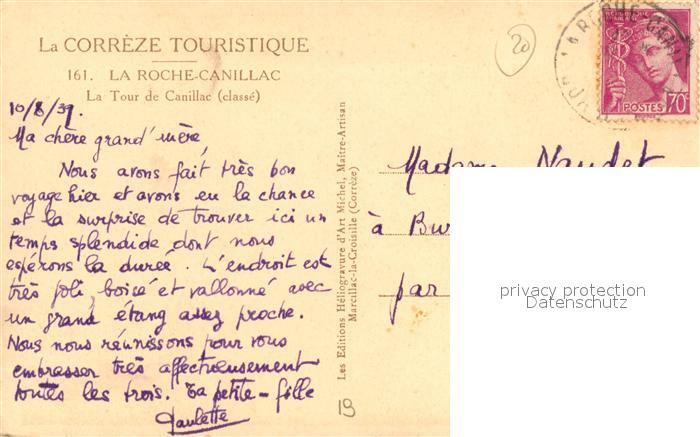 La CORRÈZE TOURISTIQUE
161. LA ROCHE-CANILLAC
La Tour de Canillac (classé)
10/8/39.
Ma chère grand'mère,
Nous avons fait très bon
voyage hier et avons eu la chance
et la surprise de trouver ici un
temps splendide dont nous
espérons la durée. L'endroit est
très joli, boisé et vallonné avec
un grand étang assez proche.
Nous nous réunissons pour vous
embrasser très affectueusement
toutes les trois. Ta petite-fille
Paulette
Les Editions Héliogravure d'Art Michel, Maître-Artisan
Marcillac-la-Croisille (Corrèze)
20
POSTES 70c
Madame Naudet
à Bur
par
privacy protection
Datenschutz
19